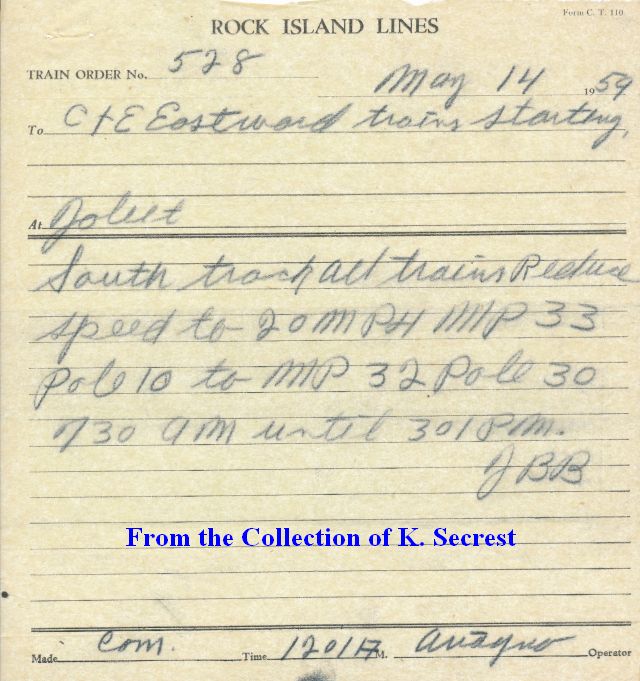 Form C. T. 110
ROCK ISLAND LINES
TRAIN ORDER No. 528
May 14 1959
To C+E Eastward trains starting,
At Joliet
South track all trains Reduce
speed to 20 MPH MP 33
Pole 10 to MP 32 Pole 30
730 AM until 301 PM.
JBB
From the Collection of K. Secrest
Made Com. Time 1201 M. Operator